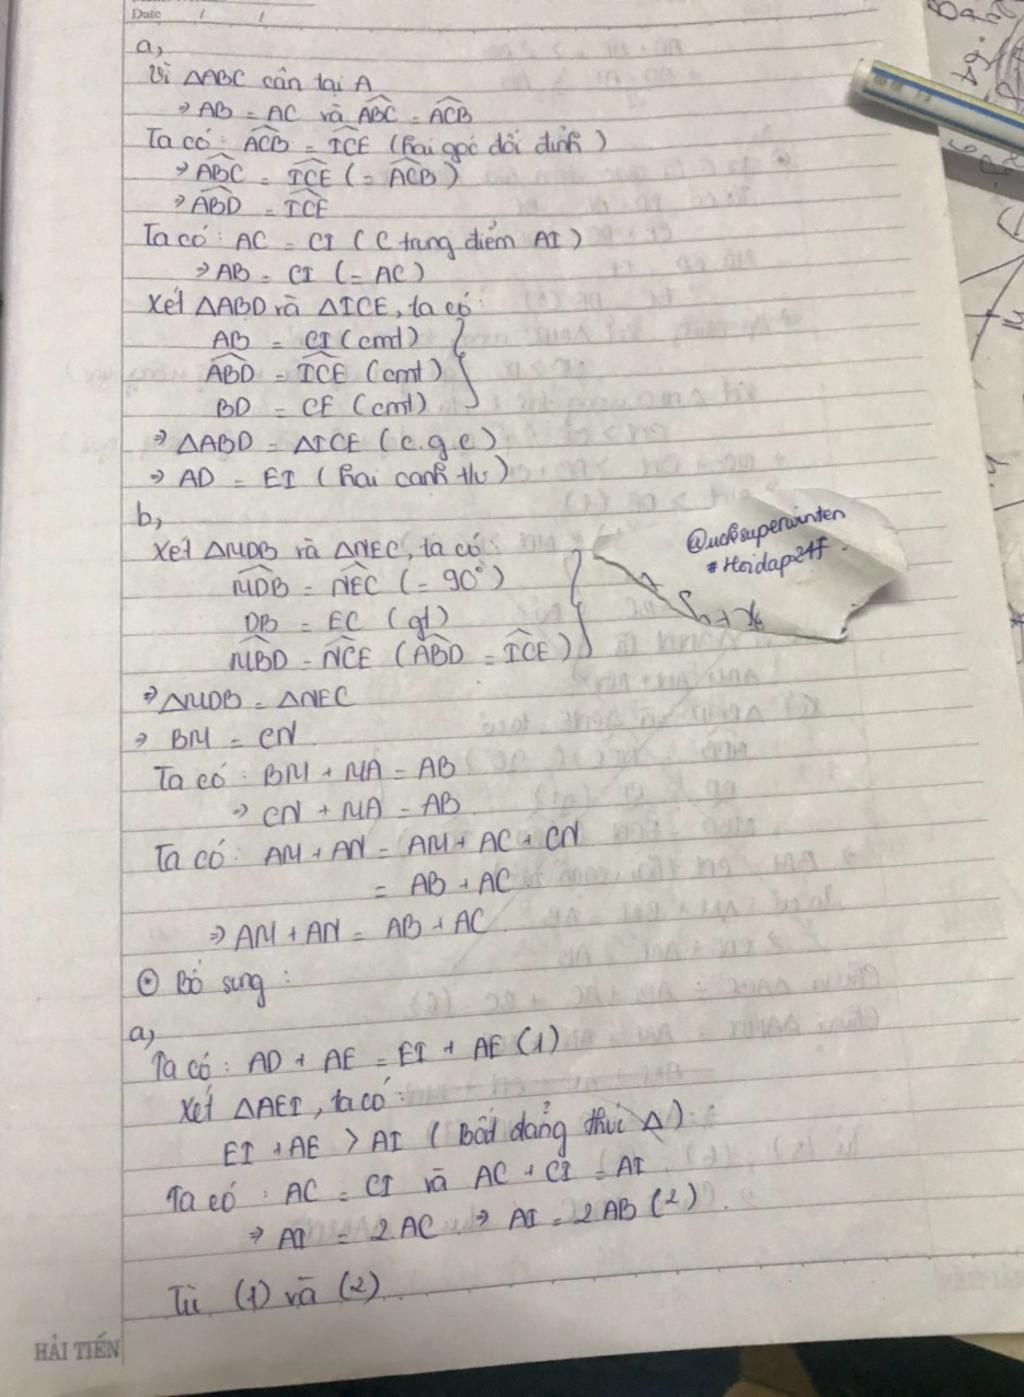 Date / /
a,
Vì ΔABC cân tại A
⇒ AB = AC và \widehat{ABC} = \widehat{ACB}
Ta có: \widehat{ACB} = \widehat{ICE} (hai góc đối đỉnh)
⇒ \widehat{ABC} = \widehat{ICE} (= \widehat{ACB})
⇒ \widehat{ABD} = \widehat{ICE}
Ta có: AC = CI (C trung điểm AI)
⇒ AB = CI (= AC)
Xét ΔABD và ΔICE, ta có:
AB = CI (cmt)
\widehat{ABD} = \widehat{ICE} (cmt)
BD = CE (cmt)
⇒ ΔABD = ΔICE (c.g.c)
⇒ AD = EI (hai cạnh tư)
b,
Xét ΔMDB và ΔNEC, ta có:
\widehat{MDB} = \widehat{NEC} (= 90°)
DB = EC (gt)
\widehat{MBD} = \widehat{NCE} (\widehat{ABD} = \widehat{ICE})
@ucksuperwinten
#Hoidap247
⇒ ΔMDB = ΔNEC
⇒ BM = CN
Ta có: BM + MA = AB
⇒ CN + MA = AB
Ta có: AM + AN = AM + AC + CN
= AB + AC
⇒ AM + AN = AB + AC
⊙ Bổ sung:
a,
Ta có: AD + AE = EI + AE (1)
Xét ΔAEI, ta có:
EI + AE > AI (Bất đẳng thức Δ)
Ta có: AC = CI và AC + CI = AI
⇒ AI = 2AC ⇒ AI = 2AB (2)
Từ (1) và (2)
HẢI TIẾN